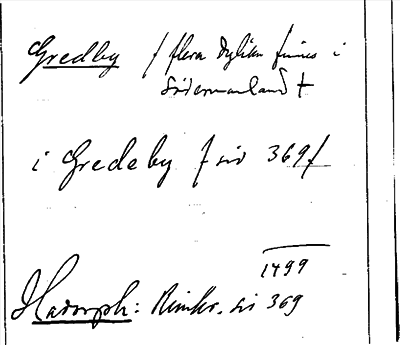 Gredby / flera dylika finnes i
Södermanland +
i Gredeby / sid 369 /
1499
Hadorph: Rimkr. sid 369